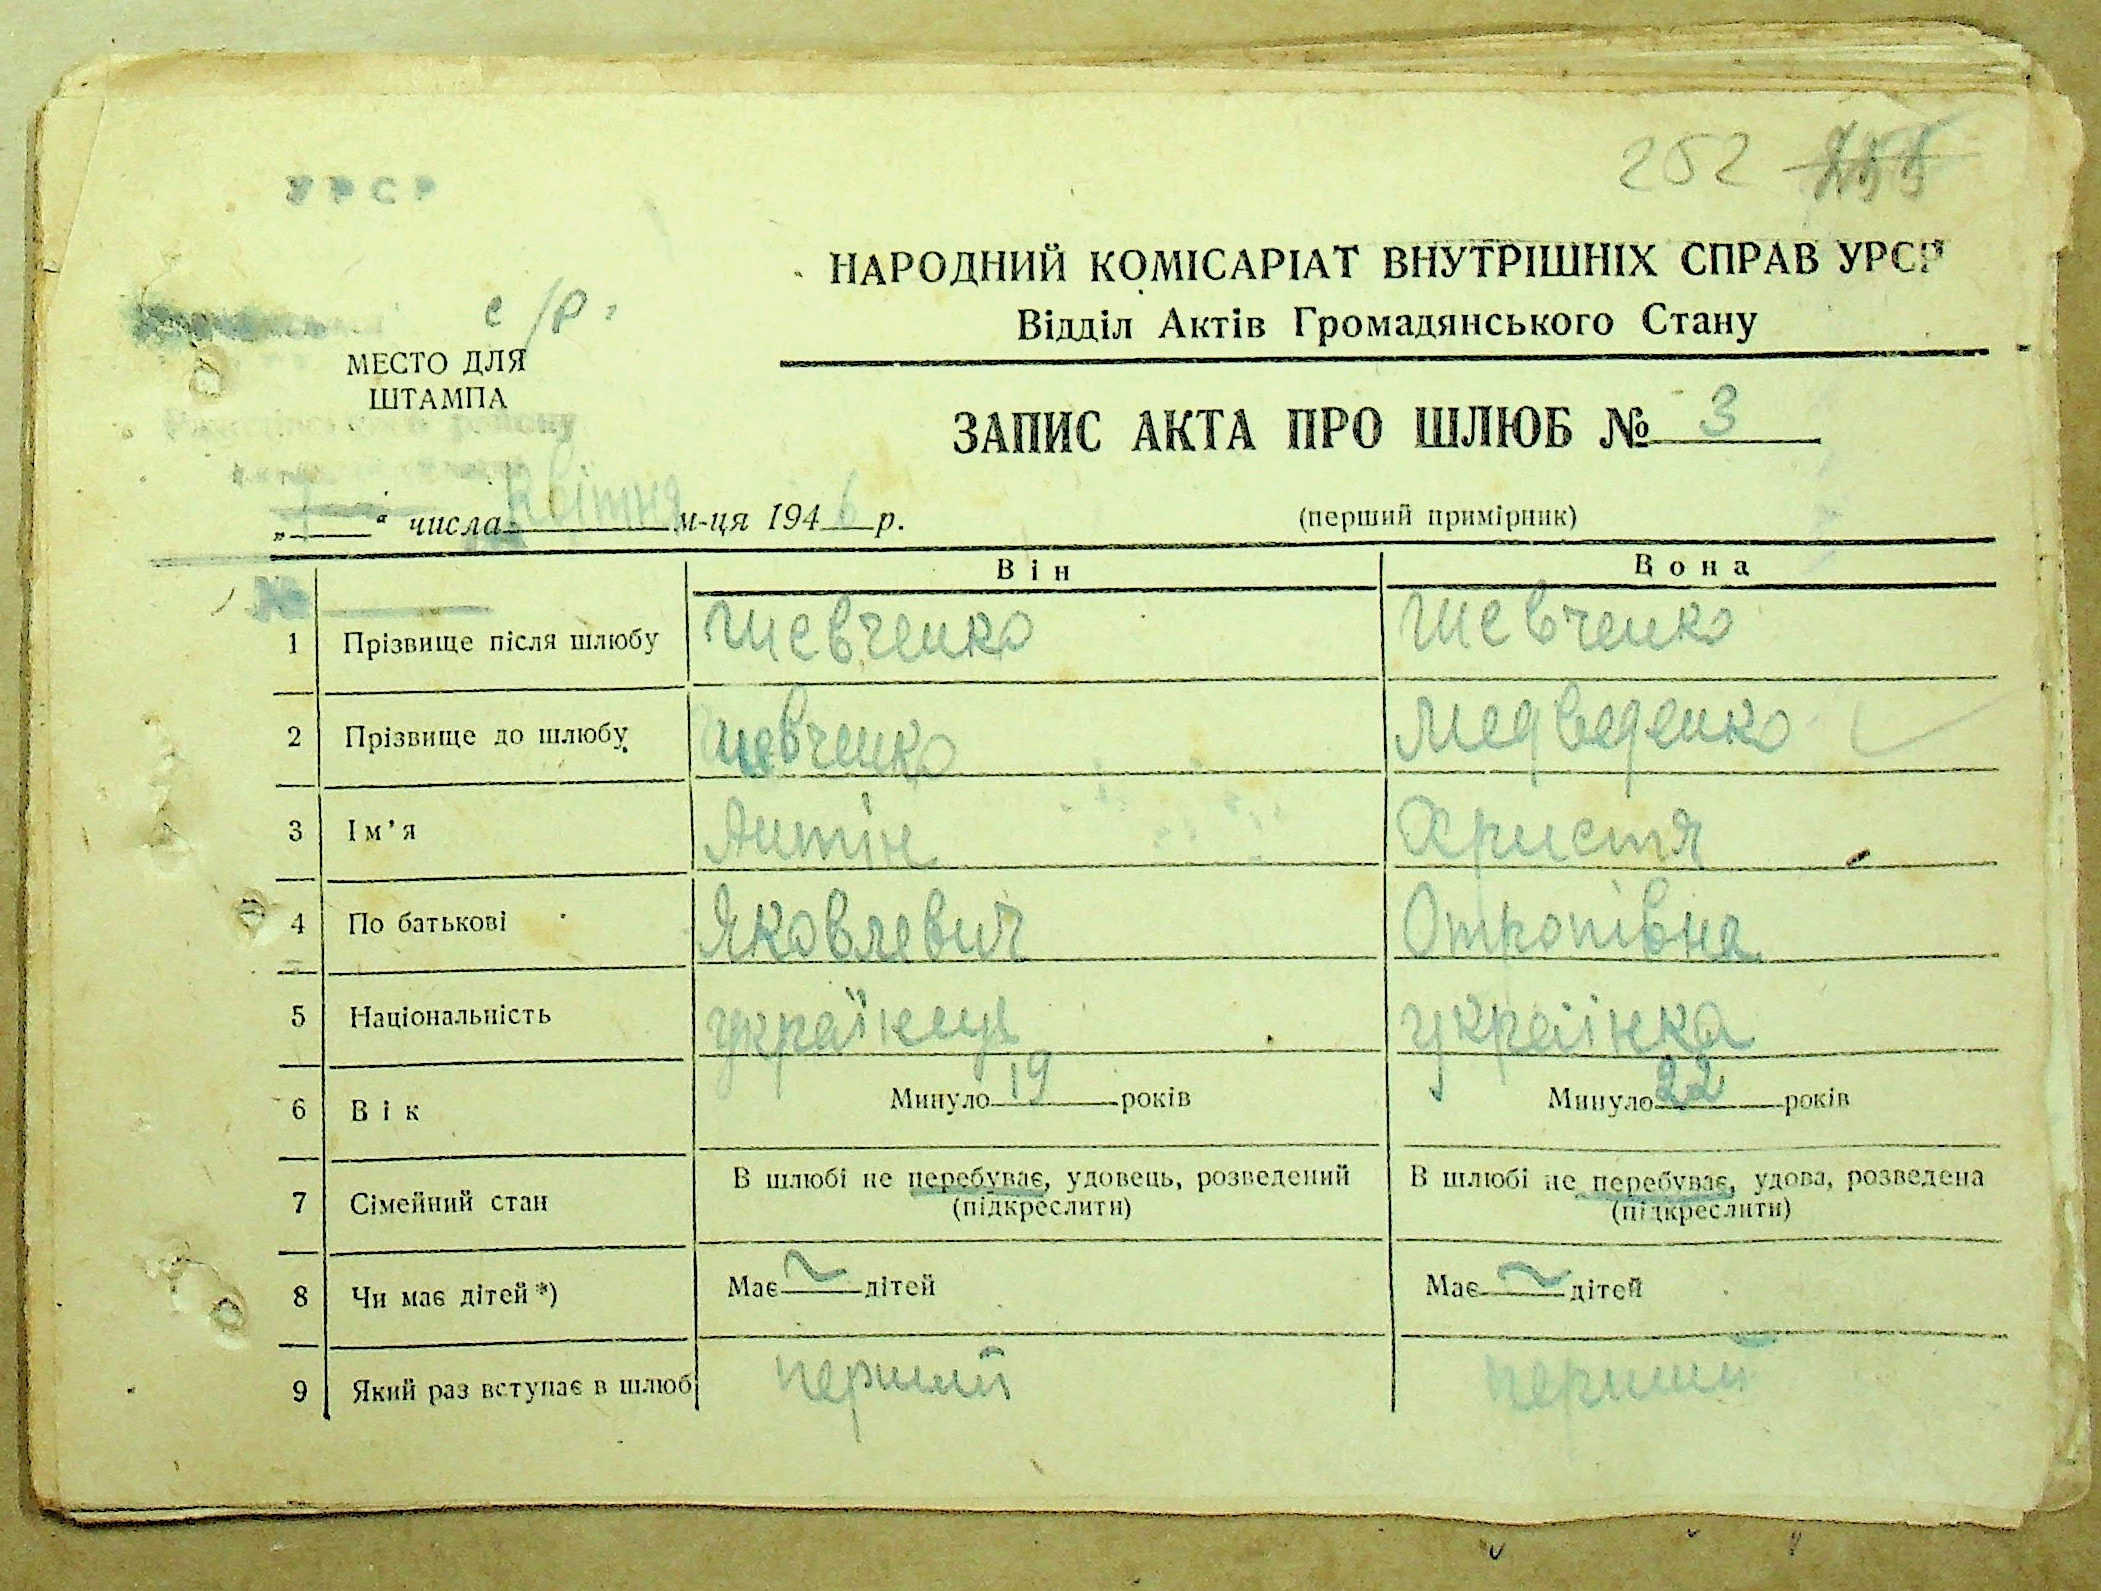 252 255
УРСР
НАРОДНИЙ КОМІСАРІАТ ВНУТРІШНІХ СПРАВ УРСР
Відділ Актів Громадянського Стану
с/р.
МЕСТО ДЛЯ
ШТАМПА
району
ЗАПИС АКТА ПРО ШЛЮБ № 3
„1“ числа Квітня м-ця 1946 р.
(перший примірник)
Він Вона
№
1 Прізвище після шлюбу Шевченко Шевченко
2 Прізвище до шлюбу Шевченко Медведенко
3 Ім'я Антін Христя
4 По батькові Яковлевич Отропівна
5 Національність українец українка
6 Вік Минуло 19 років Минуло 22 років
7 Сімейний стан В шлюбі не перебуває, удовець, розведений В шлюбі не перебуває, удова, розведена
(підкреслити) (підкреслити)
8 Чи має дітей *) Має ~ дітей Має ~ дітей
9 Який раз вступає в шлюб перший перший